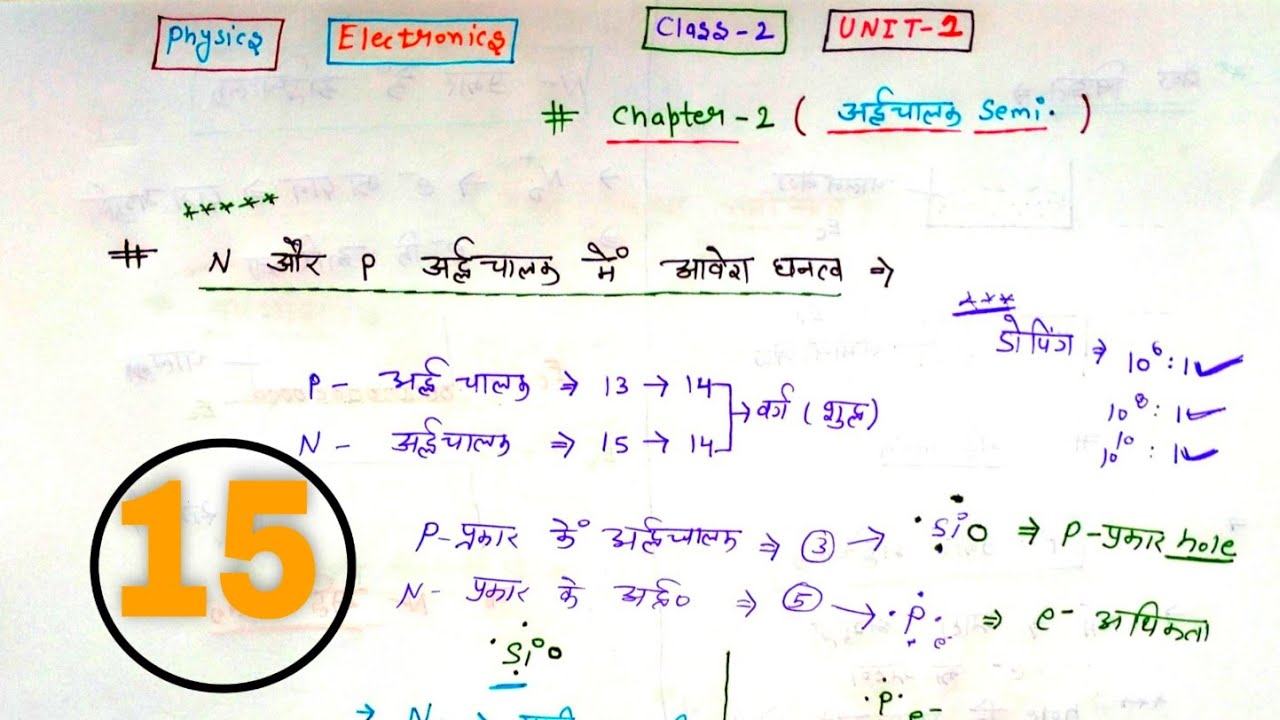 Physics Electronics Class-2 UNIT-1
# Chapter-2 ( अर्द्धचालक Semi. )
*****
# N और P अर्द्धचालक में आवेश घनत्व ⇒
***
डोपिंग ⇒ 10⁶ : 1 ✓
P - अर्द्धचालक ⇒ 13 → 14
→ वर्ग (शुद्ध)
10⁸ : 1 ✓
N - अर्द्धचालक ⇒ 15 → 14
10¹⁰ : 1 ✓
15
P-प्रकार कें अर्द्धचालक ⇒ ③ → Si ⇒ P-प्रकार hole
N- प्रकार के अर्द्ध० ⇒ ⑤ → P e⁻ ⇒ e⁻ अधिकता
Si
P e⁻
→ N